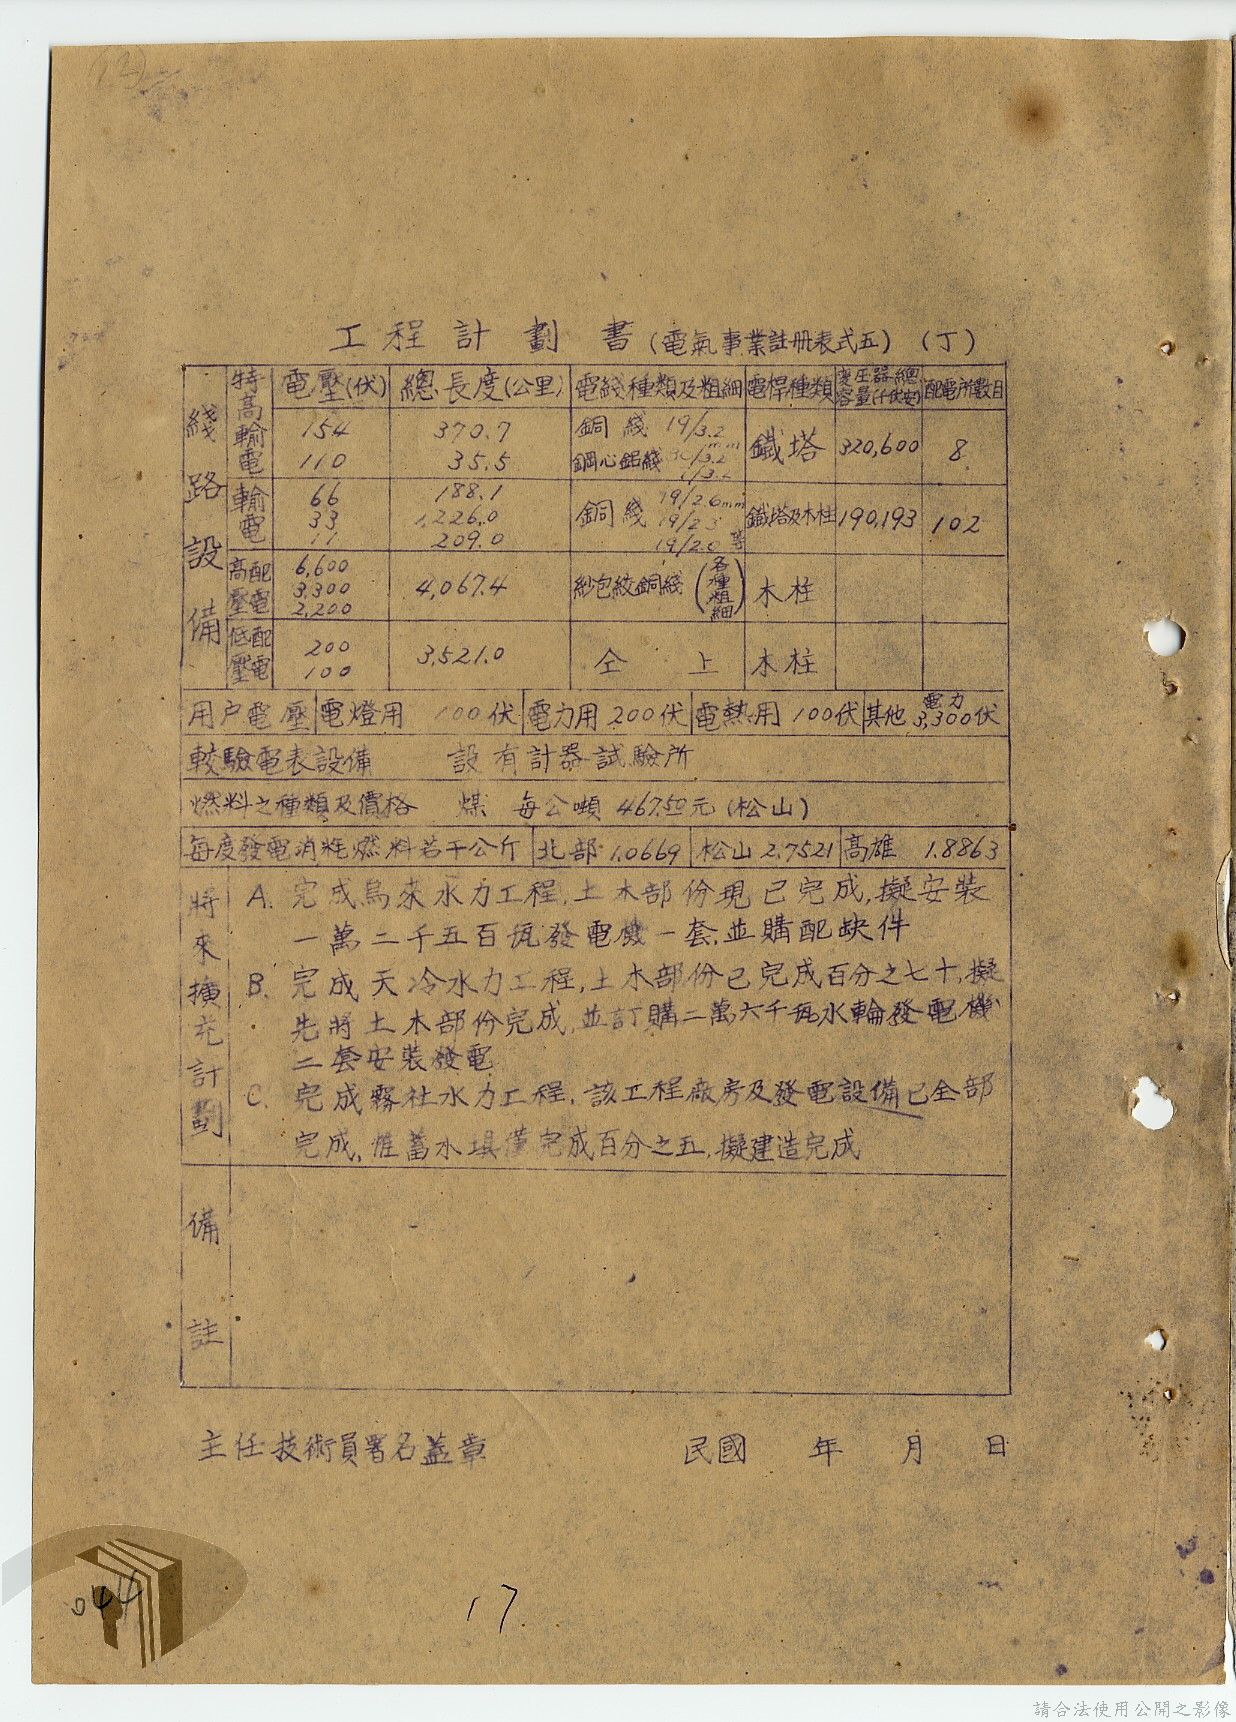 工程計劃書(電氣事業註冊表式五)(丁)
綫路設備
特高輸電 電壓(伏) 總長度(公里) 電綫種類及粗細 電桿種類 變压器總容量(千伏安) 配電所數目
154 370.7 銅綫 19/3.2
110 35.5 鋼心鋁綫 鐵塔 320,600 8
輸電 66 188.1 19/2.6mm
33 1,226.0 銅綫 19/2.3 鐵塔及木柱 190,193 102
11 209.0 19/2.0 等
高壓配電 6,600
3,300 4,067.4 紗包絞銅綫(各種粗細) 木柱
2,200
低壓配電 200 3,521.0 仝上 木柱
100
用户電壓 電燈用 100伏 電力用 200伏 電熱用 100伏 其他 電力 3,300伏
較驗電表設備 設有計器試驗所
燃料之種類及價格 煤 每公噸 467.50元(松山)
每度發電消耗燃料若干公斤 北部 1.0669 松山 2.7521 高雄 1.8863
將來擴充計劃
A. 完成烏來水力工程,土木部份現已完成,擬安裝
一萬二千五百瓩發電機一套,並購配缺件
B. 完成天冷水力工程,土木部份已完成百分之七十,擬
先將土木部份完成,並訂購二萬六千瓩水輪發電機
二套安裝發電
C. 完成霧社水力工程,該工程廠房及發電設備已全部
完成,惟蓄水壩僅完成百分之五,擬建造完成
備註
主任技術員署名蓋章 民國 年 月 日
044
17
請合法使用公開之影像